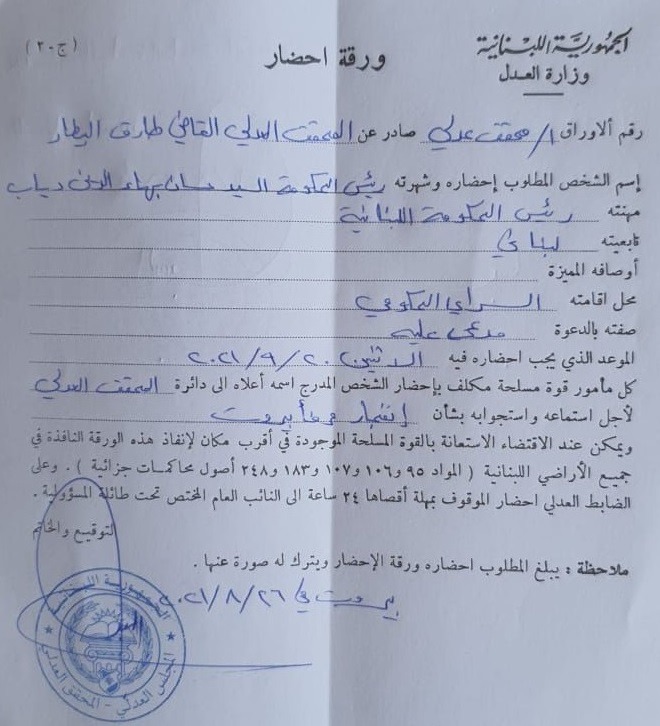 الجمهورية اللبنانية
وزارة العدل
ورقة احضار
(ج-٢٠)
رقم ألاوراق ١/محقق عدلي صادر عن المحقق العدلي القاضي طارق البيطار
إسم الشخص المطلوب إحضاره وشهرته رئيس الحكومة السيد حسان بهاء الدين دياب
مهنته رئيس الحكومة اللبنانية
تابعيته لبناني
أوصافه المميزة
محل اقامته السراي الحكومي
صفته بالدعوة مدعى عليه
الموعد الذي يجب احضاره فيه الاثنين ٢٠/٩/٢٠٢١
كل مأمور قوة مسلحة مكلف بإحضار الشخص المدرج اسمه أعلاه الى دائرة المحقق العدلي
لأجل استماعه واستجوابه بشأن إنفجار مرفأ بيروت
ويمكن عند الاقتضاء الاستعانة بالقوة المسلحة الموجودة في أقرب مكان لإنفاذ هذه الورقة النافذة في
جميع الأراضي اللبنانية ( المواد ٩٥ و١٠٦ و١٠٧ و١٨٣ و٢٤٨ أصول محاكمات جزائية ) . وعلى
الضابط العدلي احضار الموقوف بمهلة أقصاها ٢٤ ساعة الى النائب العام المختص تحت طائلة المسؤولية .
التوقيع والخاتم
ملاحظة : يبلغ المطلوب احضاره ورقة الإحضار ويترك له صورة عنها .
بيروت في ٢٦/٨/٢٠٢١
الجمهورية اللبنانية
المجلس العدلي - المحقق العدلي